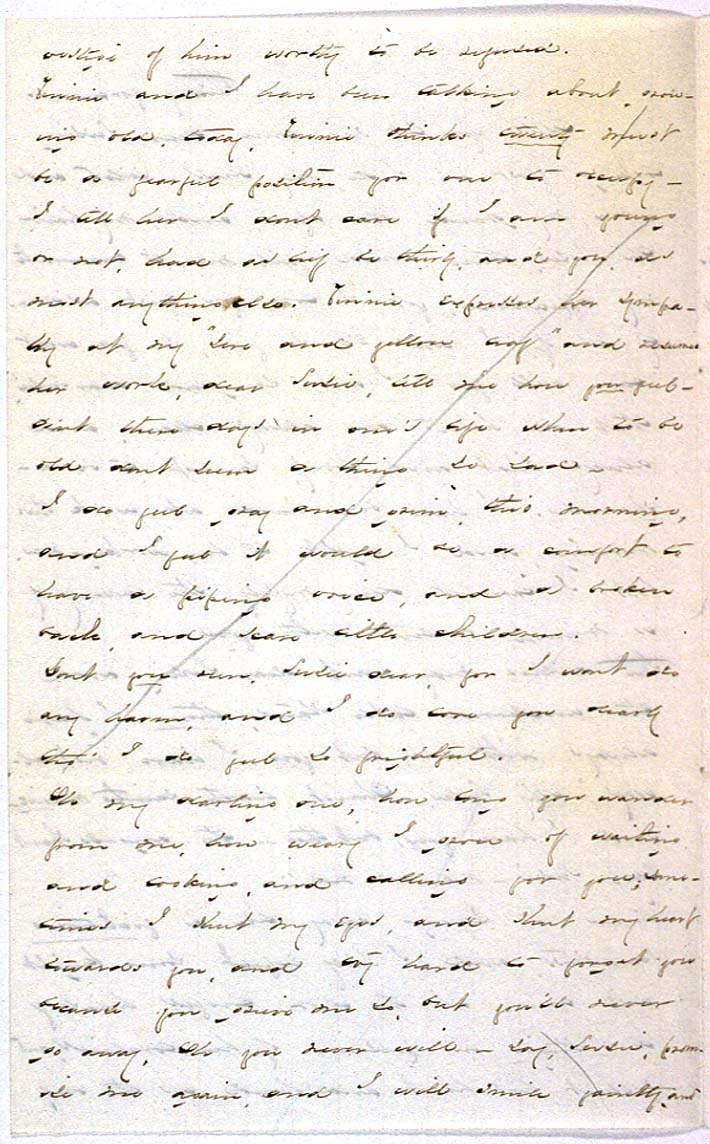 vestige of him worthy to be refused.
Vinnie and I have been talking about grow-
ing old, today. Vinnie thinks twenty must
be a fearful position for one to occupy—
I tell her I dont care if I am young
or not, had as lief be thirty, and you, as
most anything else. Vinnie expresses her sympa-
thy at my "sere and yellow leaf" and resumes
her work, dear Susie, tell me how you feel—
aint there days in one's life when to be
old dont seem a thing so sad—
I do feel gray and grim, this morning,
and I feel it would be a comfort to
have a piping voice, and a broken
back, and scare little children.
Dont you run, Susie dear, for I wont do
any harm, and I do love you dearly
tho' I do feel so frightful.
Oh my darling one, how long you wander
from me, how weary I grow of waiting
and looking, and calling for you; some-
times I shut my eyes, and shut my heart
towards you, and try hard to forget you
because you grieve me so, but you'll never
go away, Oh you never will – say, Susie, prom-
ise me again, and I will smile faintly, and